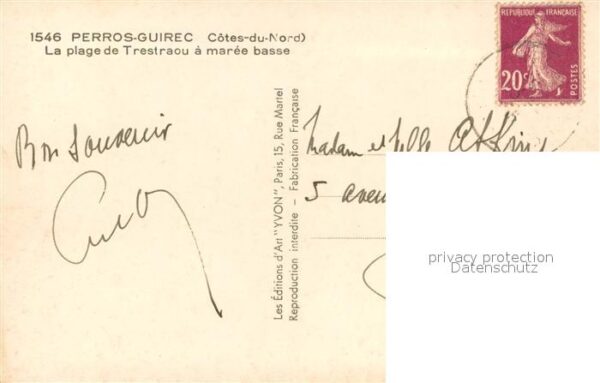 1546 PERROS-GUIREC (Côtes-du-Nord)
La plage de Trestraou à marée basse
REPUBLIQUE FRANÇAISE
20c
POSTES
Bon Souvenir
Les Éditions d'Art "YVON", Paris, 15, Rue Martel
Reproduction interdite - Fabrication Française
Madam et Melle
5 aven
privacy protection
Datenschutz